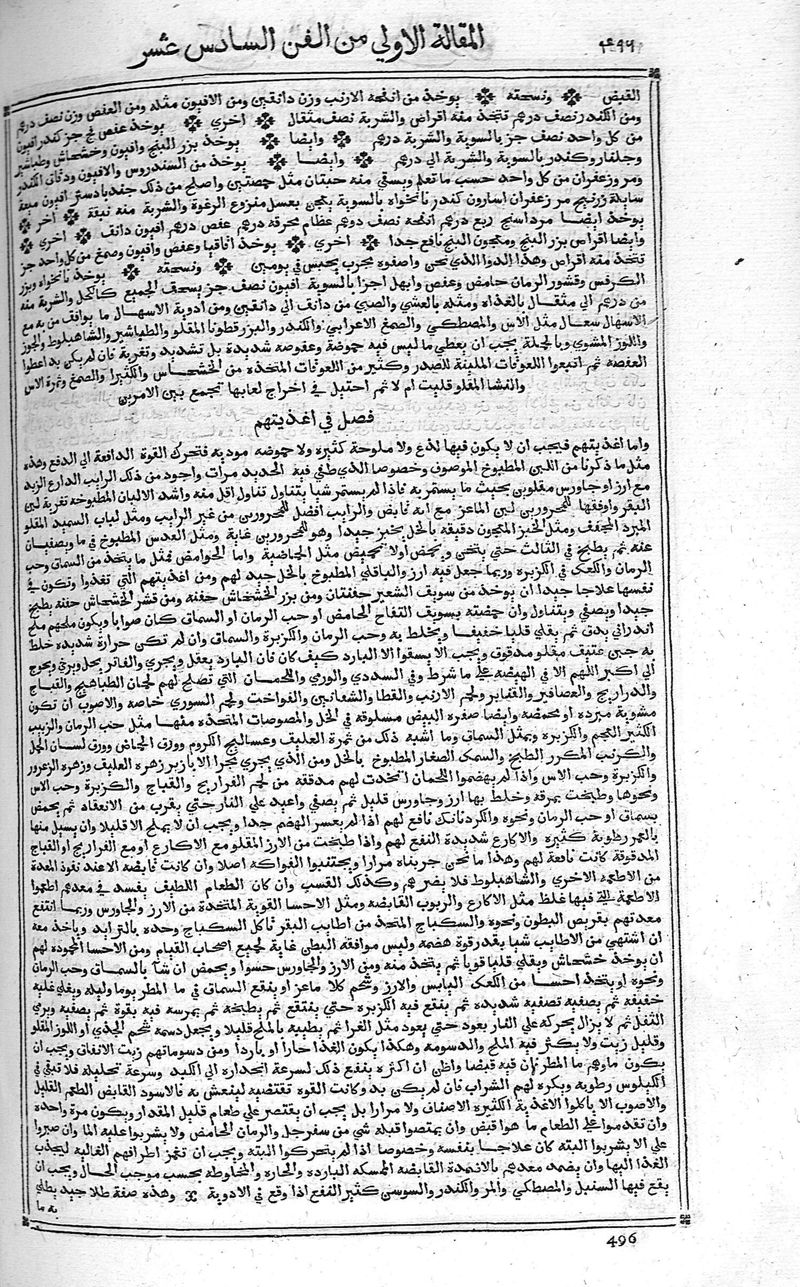 ٤٩٦ المقالة الاولي من الفن السادس عشر
القبض ونسخته يوخذ من انفحه الارنب وزن دانقين ومن الافيون مثله ومن العفص وزن نصف درهم
ومن الكندر نصف درهم تتخذ منه اقراص والشربة نصف مثقال اخري يوخذ عفص نج جز كندر افيون
من كل واحد نصف جز بالسوية والشربة درهم وايضا يوخذ بزر البنج وافيون وخشخاش وطباشير
وجلنار وكندر بالسوية والشربة الي درهم وايضا يوخذ من السندروس والافيون ودقاق الكندر
ومر وزعفران من كل واحد حسب ما تعلم ويسقي منه حبتان مثل حمصتين واصلح من ذلك جندبادستر افيون ميعة
سايلة زرنيخ مر زعفران اسارون كندر نانخواه بالسوية يعجن بعسل منزوع الرغوة والشربة منه نبقة اخر
يوخذ ايضا مرداسنج ربع درهم انفحه نصف درهم عظام محرقه درهم عفص درهم افيون دانف اخري
وايضا اقراص بزر البنج ومعجون البنج نافع جدا اخري يوخذ اقاقيا وعفص وافيون وصمغ من كل واحد جز
تتخذ منه اقراص وهذا الدوا الذي نحن واصفوه مجرب يحبس في يومين ونسخته يوخذ نانخواه وبزر
الكرفس وقشور الرمان حامض وعفص وابهل اجزا بالسوية افيون نصف جز يسحق الجميع كالكحل والشربة منه
من درهم الي مثقال بالغداه ومثله بالعشي والصبي من دانف الي دانقين ومن ادوية الاسهال ما يوافف من به مع
الاسهال سعال مثل الاس والمصطكي والصمغ الاعرابي والكندر والبزر قطونا المقلو والطباشير والشاهبلوط والجوز
واللوز المشوي وبالجملة يجب ان يعطي ما ليس فيه حموضة وعفوصه شديدة بل تشديد وتغرية فان لم يكن بد اعطوا
العفصه ثم اتبعوا اللعوقات الملينة للصدر وكثير من اللعوقات المتخذه من الخشخاش والكثيرا والصمغ وثمرة الاس
والنشا المقلو قليت ام لا ثم احتيل في اخراج لعابها تجمع بين الامرين
فصل في اغذيتهم
واما اغذيتهم فيجب ان لا يكون فيها لذع ولا ملوحة كثيره ولا حموضه موذيه فتحرك القوة الدافعة الي الدفع وهذه
مثل ما ذكرنا من اللبن المطبوخ الموصوف وخصوصا الذي طفي فيه الحديد مرات واجود من ذلك الرايب الدارع الزبد
مع ارز او جاورس مقلوين بحيث ما يستمر به فاذا لم يستمر شيا يتناول تناول اقل منه واشد الالبان المطبوخه تغرية لبن
البقر واوفقها للمحرورين لبن الماعز مع انه قابض والرايب افضل للمحرورين من غير الرايب ومثل لباب السميد المقلو
المبرد المجفف ومثل الخبز المعجون دقيقه بالخل بخبز جيدا وهو للمحرورين غاية ومثل العدس المطبوخ في ما ويصفيان
عنه ثم يطبخ في الثالث حتي يثخن ويحمض اولا بحميض مثل الحماضية واما الحوامض فمثل ما يتخذ من السماق وحب
الرمان والكعك في الكزبره وربما جعل فيه ارز والباقلي المطبوخ بالخل جيد لهم ومن اغذيتهم التي تغذوا وتكون في
نفسها علاجا جيدا ان يوخذ من سويف الشعير حفنتان ومن بزر الخشخاش حفنه ومن قشر الخشخاش حفنه يطبخ
جيدا ويصفي ويتفاول وان حمضته بسويف التفاح الحامض او حب الرمان او السماق كان صوابا ويكون ملحهم ملح
اندراني يدق ثم يقلي قليا خفيفا ويخلط به وحب الرمان والكزبرة والسماق وان لم تكن حرارة شديده خلط
به جبن عتيف مقلو مدقوق ويجب الا يسقوا الا البارد كيف كان فان البارد يعقل ويجري والفاتر يحل ويرخي ويحوج
الي اكبر اللهم الا في الهيضه علي ما شرط وفي السددي والورمي واللحمان التي تصلح لهم لحمان الطياهيج والقباج
والدراريج والعصافير والقنابر ولحم الارنب والقطا والشفانين والفواخت ولحم السوري خاصه والاصوب ان تكون
مشوية مبرده او محمضه وايضا صفره البيض مسلوقه في الخل والمصوصات المتخذه منها مثل حب الرمان والزبيب
الكثير العجم والكزبره ويمثل السماق وما اشبه ذلك من ثمرة العليف وعساليج الكروم وورق الحماض وورق لسان الحمل
والكرنب المكرر الطبخ والسمك الصغار المطبوخ بالخل ومن الذي يجري مجرا الابازير زهره العليف وزهره الزعرور
والكزبرة وحب الاس واذا لم يهضموا اللحمان اتخذت لهم مدققه من لحم الفراريج والقباج والكزبرة وحب الاس
ونحوها وطبخت بمرقه وخلط بها ارز وجاورس قليل ثم يصفي واعيد علي النار حتي يقرب من الانعقاد ثم يحمض
بسماق او حب الرمان ونحوه والكردنانك نافع لهم اذا لم يعسر الهضم جدا ويجب ان لا يملح الا قليلا وان يسيل منها
بالغمر رطوبة كثيره والاكارع شديدة النفع لهم واذا طبخت من الارز المقلو مع الاكارع او مع الفراريج او القباج
المدقوقة كانت نافعة لهم وهذا ما نحن جربناه مرارا ويجتنبوا الفواكه اصلا وان كانت قابضه الا عند نفوذ المعدة
من الاطعمه الاخري والشاهبلوط فلا يضرهم وكذلك القسب وان كان الطعام اللطيف يفسد في معدهم اطعموا
الاطعمة التي فيها غلظ مثل الاكارع والربوب القابضه ومثل الاحسا القوية المتخذة من الارز والجاورس وربما انتفع
معدتهم بقريض البطون ونحوه والسكباج المتخذ من اطايب البقر ناكل السكباج وحده بالترايد وياخذ معه
ان اشتهي من الاطايب شيا بقدر قوة هضمه وليس موافقه البطي غاية لجميع اصحاب القيام ومن الاحسا المحمودة لهم
ان يوخذ خشخاش ويقلي قليا قويا ثم يتخذ منه ومن الارز والجاورس حسوا ويحمض ان شا بالسماق وحب الرمان
ونحوه او يتخذ احسا من الكعك اليابس والارز وشحم كلا ماعز او ينقع السماق في ما المطر يوما وليله ويغلي غليه
خفيفه ثم يصفيه تصفيه شديده ثم ينقع فيه الكزبره حتي ينتفع ثم يطبخه ثم يمرسه فيه بقوة ثم يصفيه ويرمي
الثفل ثم لا يزال يحركه علي النار بعود حتي يعود مثل الغرا ثم يطيبه بالملح قليلا ويجعل دسمه شحم الجدي او اللوز المقلو
وقليل زيت ولا يكثر فيه الملح والدسومه وهكذا يكون الغذا حارا او باردا ومن دسوماتهم زيت الانفاق ويجب ان
يكون ماوهم ما المطر فان فيه قبضا واظن ان اكثره ينفع ذلك لسرعة انحداره الي الكبد وسرعة تحليله فلا تبقي في
الكيلوس رطوبه ويكره لهم الشراب فان لم يكن بد وكانت القوه تقتضيه لينعش به فالاسود القابض الطعم القليل
والاصوب الا ياكلوا الاغذية الكثيره الاصناف ولا مرارا بل يجب ان يقتصر علي طعام قليل المقدار ويكون مرة واحده
وان تقدموا علي الطعام ما هو قابض وان يمتصوا قبله شي من سفرجل والرمان الحامض ولا يشربوا عليه الما وان صبروا
علي الا يشربوا البته كان علاجا بنفسه وخصوصا اذا لم يتحركوا البته ويجب ان تغمز اطرافهم العاليه ليجذب
الغذا اليها وان يضمد معدهم بالاضمدة القابضة الممسكه البارده والحاره والمخلوطه بحسب موجب الحال ويجب ان
يقع فيها السنبل والمصطكي والمر والكندر والسوسي كثير النفع اذا وقع في الادوية وهذه صفة طلا جيد يطلي
به ما
496